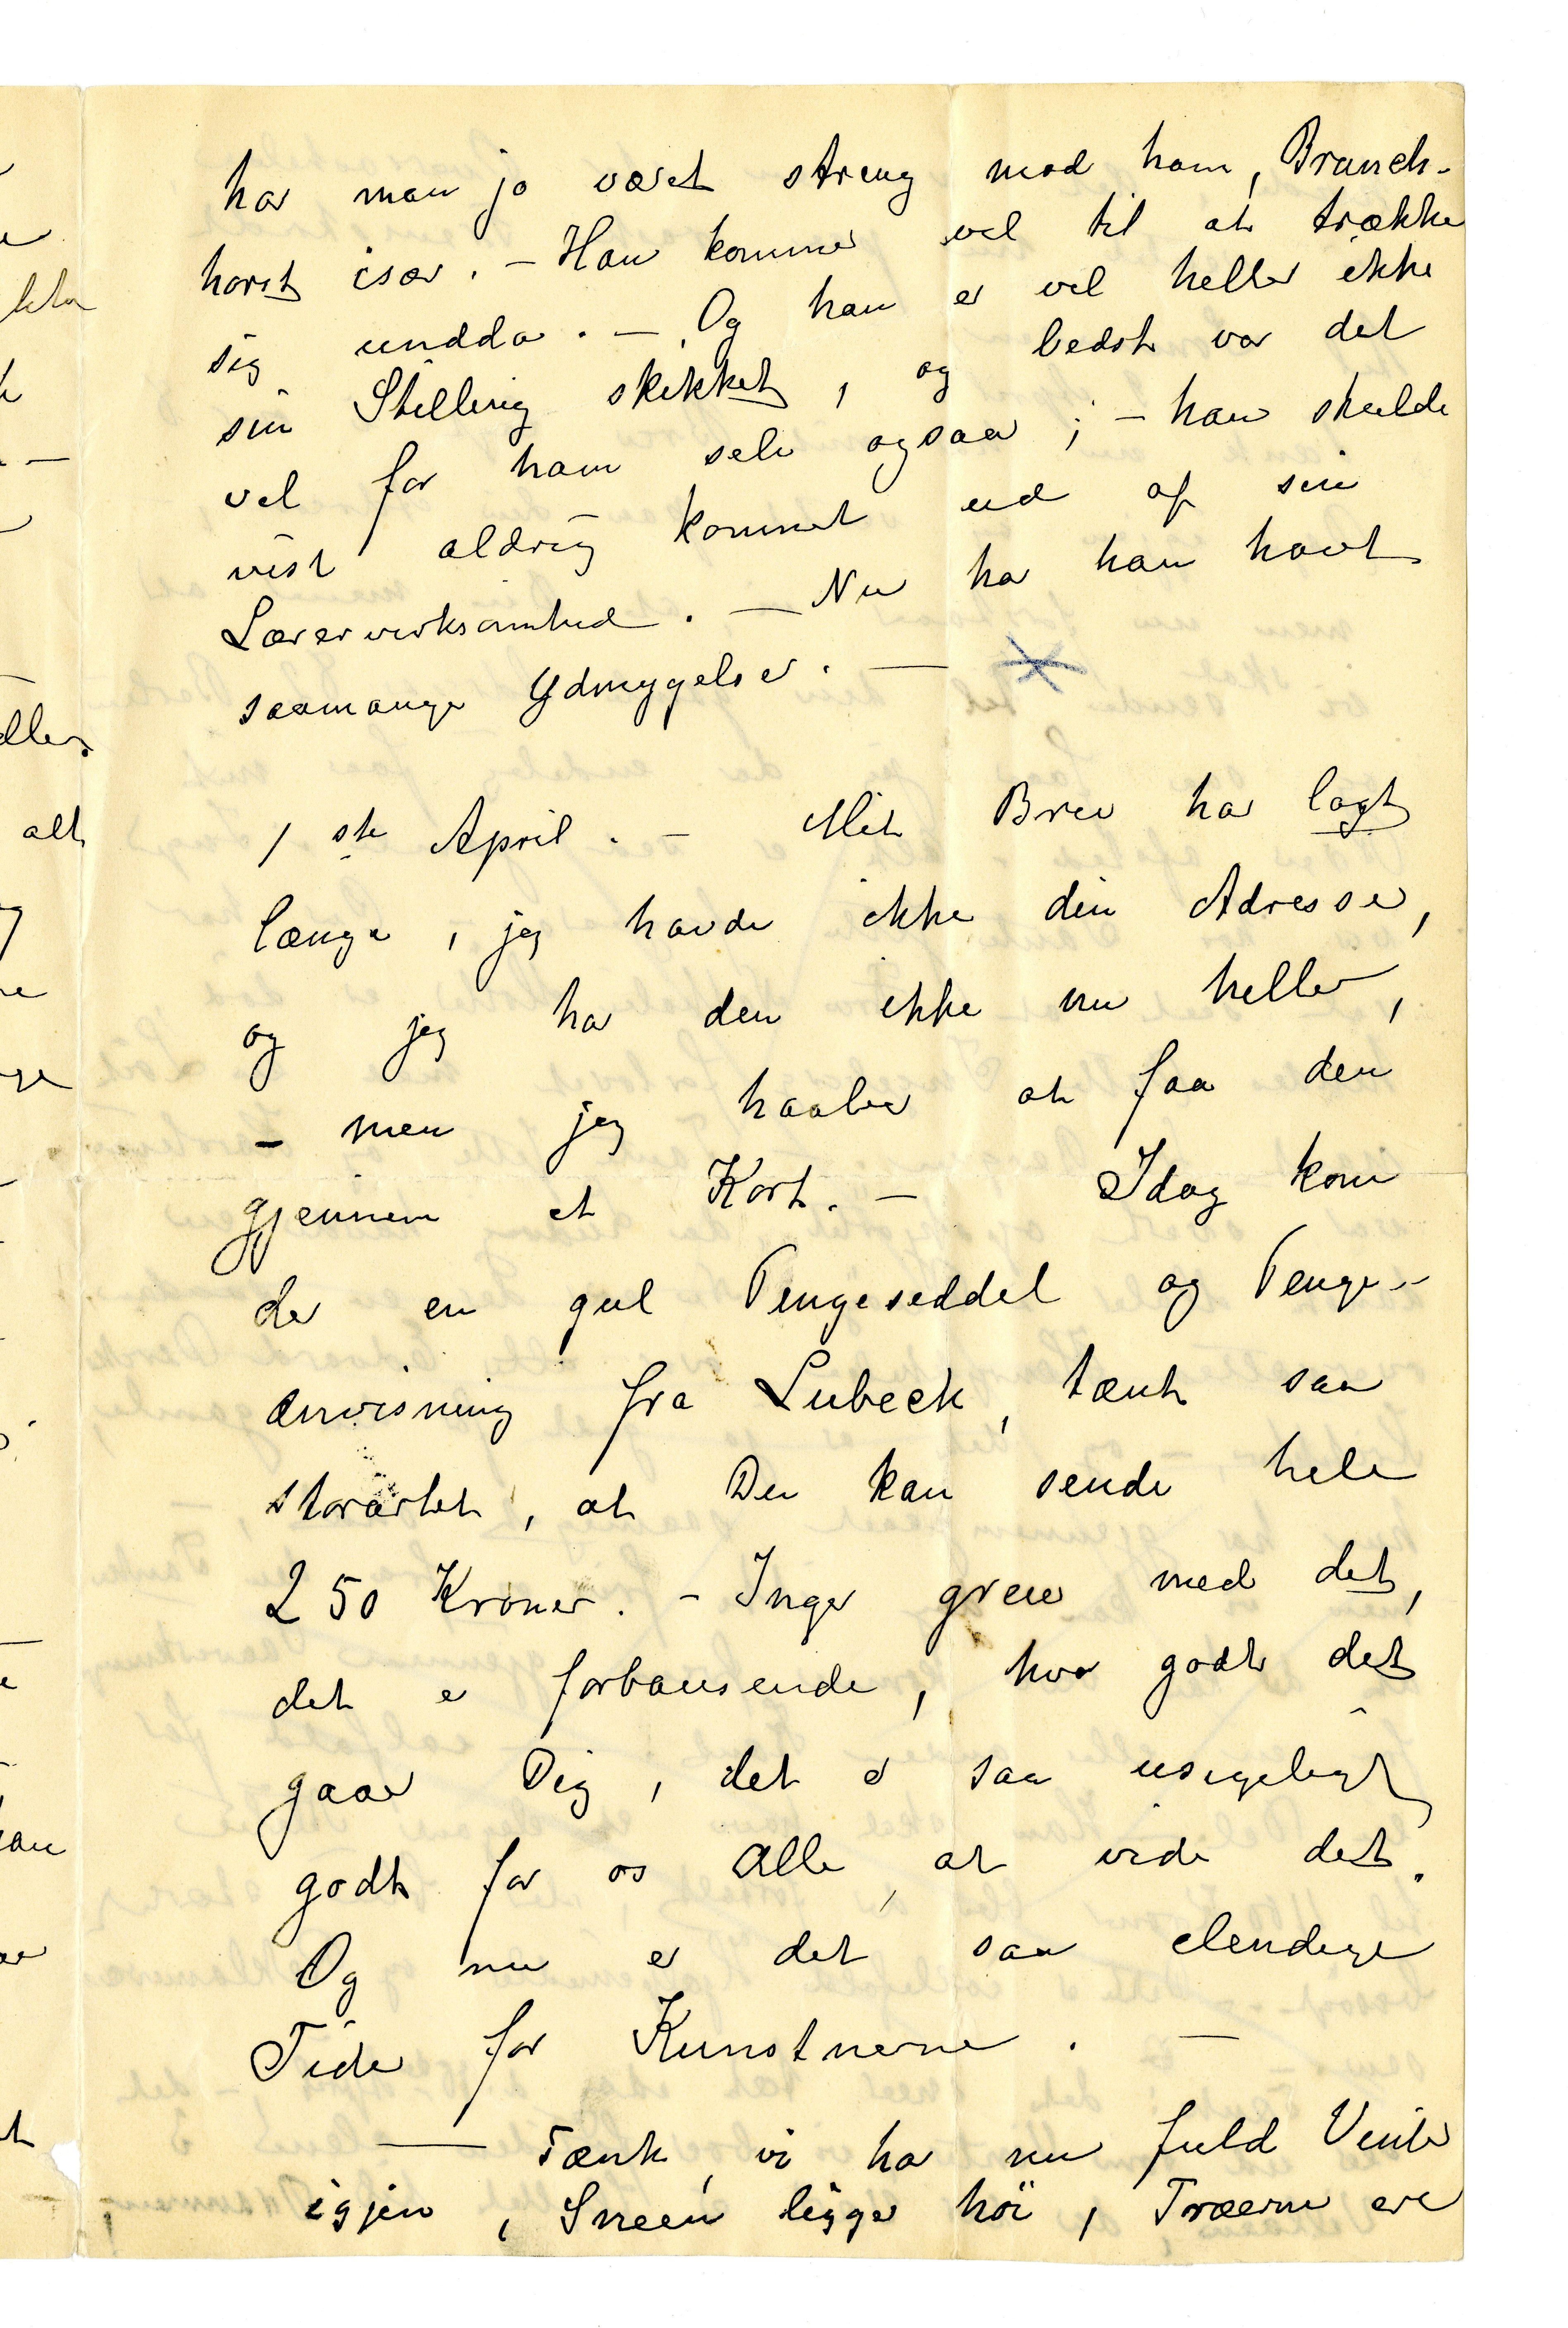 har man jo været streng mod ham, Brunch-
horst især. – Han kommer vel til at trække
sig undda. – Og han er vel heller ikke
sin Stilling skikket, og bedst var det
vel for ham selv ogsaa; – han skulde
vist aldrig kommet ud af sin
Lærervirksomhed. – Nu har han havt
saamange Ydmygelser. –
1ste April. – Mit Brev har lagt
længe, jeg havde ikke din Adresse,
og jeg har den ikke nu heller,
– men jeg haaber at faa den
gjennem et Kort. – Idag kom
der en gul Pengeseddel og Penge-
anvisning fra Lubeck, tænk saa
storartet, at Du kan sende hele
250 Kroner. – Inger greie med det,
det er forbausende, hvor godt det
gaar Dig, det er saa usigeligt
godt for os Alle, at vide det.
Og nu er det saa elendige
Tider for Kunstnerne. –
– Tænk, vi har nu fuld Vinter
igjen, Sneen ligger høi, Træerne ere